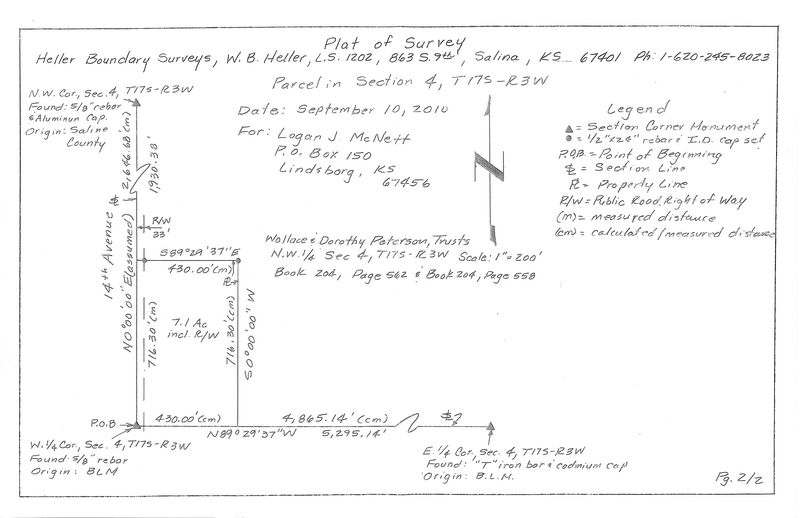 Plat of Survey
Heller Boundary Surveys, W. B. Heller, L.S. 1202, 863 S. 9th, Salina, KS 67401 Ph: 1-620-245-8023
Parcel in Section 4, T17S-R3W
Date: September 10, 2010
For: Logan J. McNett
P.O. Box 150
Lindsborg, KS
67456
N
Legend
▲ = Section Corner Monument
● = 1/2"x24" rebar & I.D. cap set
P.O.B. = Point of Beginning
= Section Line
PL = Property Line
R/W = Public Road Right of Way
(m) = measured distance
(cm) = calculated/measured distance
N.W. Cor, Sec. 4, T17S-R3W
Found: 5/8" rebar
& Aluminun Cap.
Origin: Saline
County
2,646.68'(m)
1,930.38'
R/W
33'
14th Avenue
N0°00'00"E (assumed)
S89°29'37"E
430.00'(m)
PL
Wallace & Dorothy Peterson, Trusts
N.W. 1/4 Sec 4, T17S-R3W Scale: 1"=200'
Book 204, Page 562 & Book 204, Page 558
716.30'(m)
7.1 Ac
incl. R/W
716.30'(cm)
S0°00'00"W
P.O.B
430.00'(cm)
4,865.14'(cm)
N89°29'37"W
5,295.14'
W. 1/4 Cor, Sec. 4, T17S-R3W
Found: 5/8" rebar
Origin: BLM
E. 1/4 Cor, Sec. 4, T17S-R3W
Found: "T" iron bar & cadmium cap
Origin: B.L.M.
Pg. 2/2